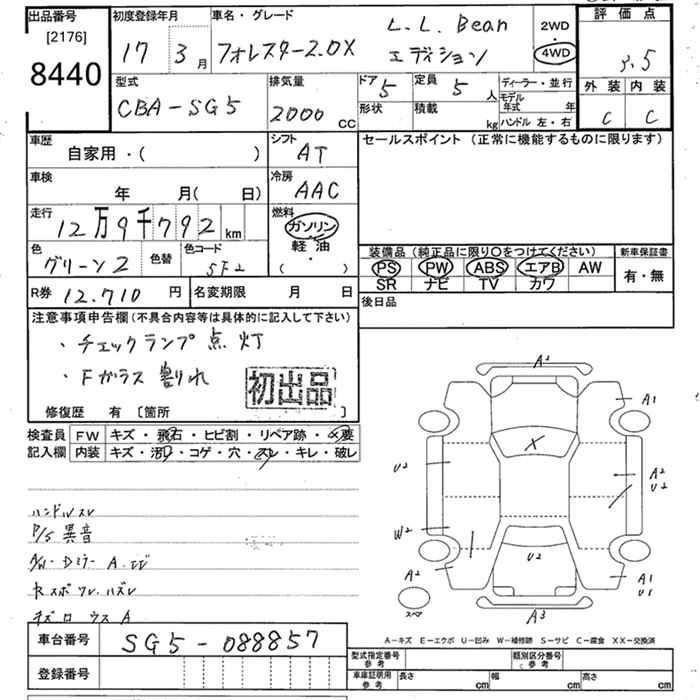 出品番号
[2176]
8440
初度登録年月
17 3月
車名・グレード
フォレスター2.0X
L.L. Bean
エディション
2WD
4WD
評価点
3.5
外装 内装
C C
型式
CBA-SG5
排気量
2000 CC
ドア 5
定員 5 人
形状
積載 kg
ディーラー・並行
モデル年式 年
ハンドル 左・右
車歴
自家用・( )
シフト
AT
セールスポイント (正常に機能するものに限ります)
車検
年 月( 日)
冷房
AAC
走行
12万9千792 km
燃料
ガソリン
軽油
( ・ )
色
グリーン2
色替
色コード
5F2
装備品 (純正品に限り○をつけてください)
PS PW ABS エアB AW
SR ナビ TV カワ
新車保証書
有・無
R券 12,710 円
名変期限 月 日
後日品
注意事項申告欄(不具合内容等は具体的に記入して下さい)
・チェックランプ点灯
・Fガラス割れ
初出品
修復歴 有 [箇所 ]
検査員
記入欄
FW キズ・飛石・ヒビ割・リペア跡・×要
内装 キズ・汚れ・コゲ・穴・スレ・キレ・破レ
ハンドルスレ
P/S異音
Dミラー A
A2
A1
X
U2
A2
U2
W2
U2
A2
A1
U1
スペア
A3
A-キズ E-エクボ U-凹み W-補修跡 S-サビ C-腐食 XX-交換済
車台番号
SG5-088857
登録番号
型式指定番号
参考
類別区分番号
参考
車庫証明用
参考
長さ cm
幅 cm
高さ cm